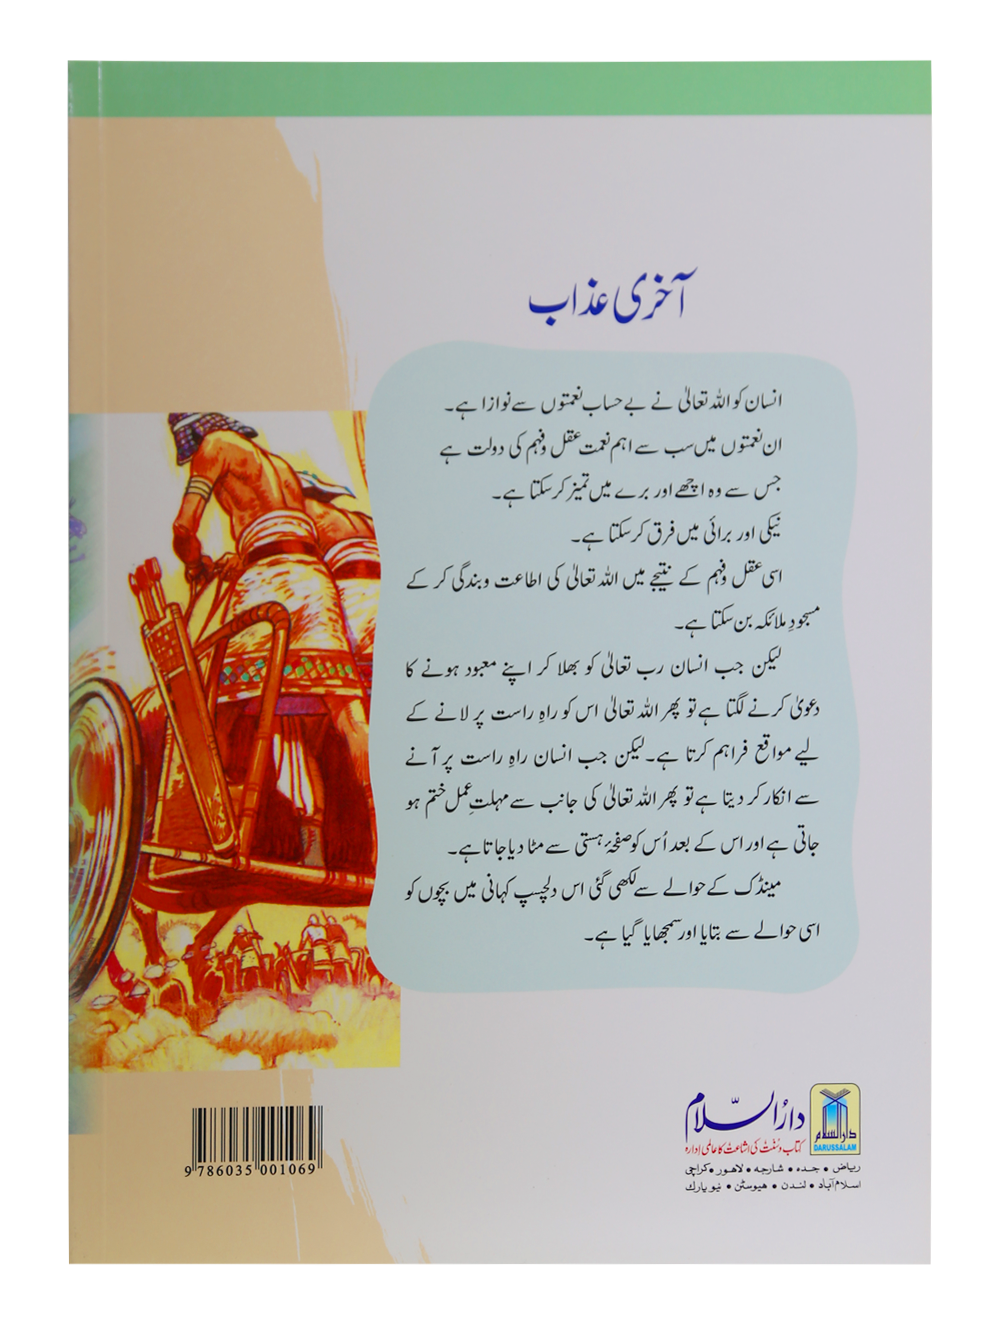 آخری عذاب
انسان کو اللہ تعالیٰ نے بے حساب نعمتوں سے نوازا ہے۔
ان نعمتوں میں سب سے اہم نعمت عقل و فہم کی دولت ہے
جس سے وہ اچھے اور برے میں تمیز کر سکتا ہے۔
نیکی اور برائی میں فرق کر سکتا ہے۔
اسی عقل و فہم کے نتیجے میں اللہ تعالیٰ کی اطاعت و بندگی کر کے
مسجودِ ملائکہ بن سکتا ہے۔
لیکن جب انسان رب تعالیٰ کو بھلا کر اپنے معبود ہونے کا
دعویٰ کرنے لگتا ہے تو پھر اللہ تعالیٰ اس کو راہِ راست پر لانے کے
لیے مواقع فراہم کرتا ہے۔ لیکن جب انسان راہِ راست پر آنے
سے انکار کر دیتا ہے تو پھر اللہ تعالیٰ کی جانب سے مہلتِ عمل ختم ہو
جاتی ہے اور اس کے بعد اُس کو صفحۂ ہستی سے مٹا دیا جاتا ہے۔
مینڈک کے حوالے سے لکھی گئی اس دلچسپ کہانی میں بچوں کو
اسی حوالے سے بتایا اور سمجھایا گیا ہے۔
دارالسلام
DARUSSALAM
دارُالسّلام
کتاب و سنّت کی اشاعت کا عالمی ادارہ
ریاض • جدہ • شارجہ • لاهور • کراچی
اسلام آباد • لندن • هیوسٹن • نیو یارک
9 786035 001069